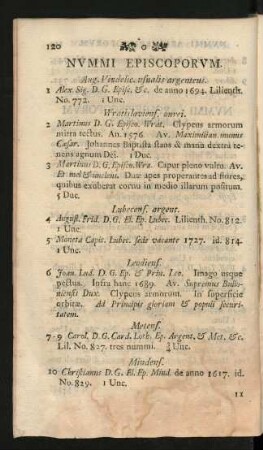 120
NVMMI EPISCOPORVM.
Aug. Vindelic. usualis argenteus.
1 Alex. Sig. D. G. Episc. &c. de anno 1694. Lilienth.
No. 772. 1 Unc.
Wratislaviens. aurei.
2 Martinus D. G. Episco. Wrat. Clypeus armorum
mitra tectus. An. 1576. Av. Maximilian munus
Cæsar. Johannes Baptista stans & manu dextra te-
nens agnum Dei. 1 Duc.
3 Martinus D. G. Episco. Wra. Caput pleno vultu. Av.
Et mel & aculeum. Duæ apes properantes ad flores,
quibus exoberat cornu in medio illarum positum.
5 Duc.
Lubecens. argent.
4 August. Frid. D. G. El. Ep. Lubec. Lilienth. No. 812.
1 Unc.
5 Moneta Capit. Lubec. sede vacante 1727. id. 814.
1 Unc.
Leodiens.
6 Joan. Lud. D. G. Ep. & Prin. Leo. Imago usque
pectus. Infra hanc 1689. Av. Supremus Bullo-
niensis Dux. Clypeus armorum. In superficie
orbitæ. Ad Principis gloriam & populi securi-
tatem.
Metens.
7-9 Carol. D. G. Card. Loth. Ep. Argent. & Met. &c.
Lil. No. 827. tres nummi. Unc.
Mindens.
10 Christianus D. G. El. Ep. Mind. de anno 1617. id.
No. 829. 1 Unc.
11